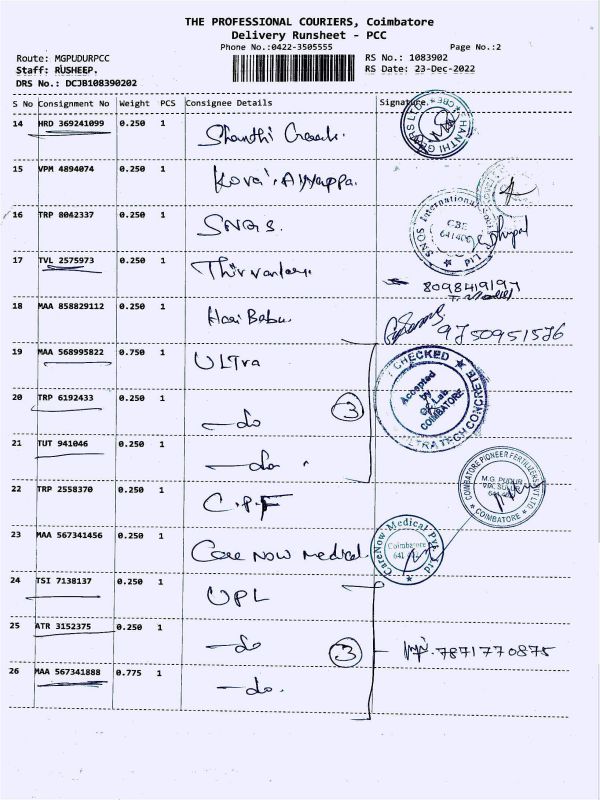 THE PROFESSIONAL COURIERS, Coimbatore
Delivery Runsheet - PCC
Phone No.:0422-3505555
Page No.:2
Route: MGPUDURPCC
RS No.: 1083902
Staff: RUSHEEP.
RS Date: 23-Dec-2022
DRS No.: DCJB108390202
S No Consignment No Weight PCS Consignee Details Signature
14 HRD 369241099 0.250 1 Shanthi
15 VPM 4894074 0.250 1 Kovai Ayyappa.
16 TRP 8042337 0.250 1 SNQS.
SNQS International
CBE
17 TVL 2575973 0.250 1
8098419197
18 MAA 858829112 0.250 1 Hari Babu.
9750951526
19 MAA 568995822 0.750 1 ULTra
CHECKED
Accepted
by
COIMBATORE
ULTRATECH CONCRETE
20 TRP 6192433 0.250 1 -do 3
21 TUT 941046 0.250 1 -do-
22 TRP 2558370 0.250 1 C.P.F
COIMBATORE PIONEER FERTILIZERS PVT LTD
M.G. PUDUR
COIMBATORE
23 MAA 567341456 0.250 1 Care Now medical.
CareNow Medical Pvt Ltd
Coimbatore
24 TSI 7138137 0.250 1 UPL
25 ATR 3152375 0.250 1 -do 3
7871770875
26 MAA 567341888 0.775 1 -do.